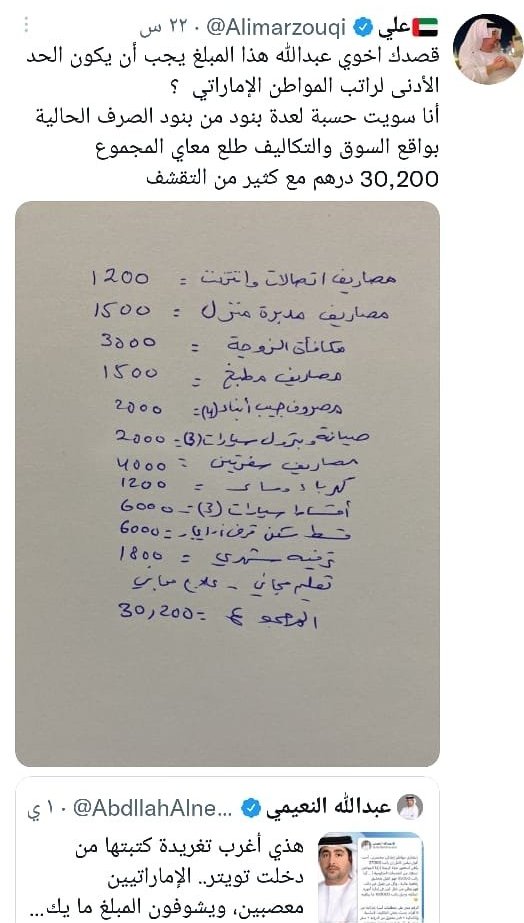 علي🇦🇪 @Alimarzouqi · ٢٢ س
قصدك اخوي عبدالله هذا المبلغ يجب أن يكون الحد
الأدنى لراتب المواطن الإماراتي ؟
أنا سويت حسبة لعدة بنود من بنود الصرف الحالية
بواقع السوق والتكاليف طلع معاي المجموع
30,200 درهم مع كثير من التقشف
مصاريف اتصالات وانترنت = 1200
مصاريف مدبرة منزل = 1500
مكافأة الزوجة = 3000
مصاريف مطبخ = 1500
مصروف جيب أبناء (4) = 2000
صيانة وبترول سيارات (3) = 2000
مصاريف سفرتين = 4000
كهرباء وماء = 1200
أقساط سيارات (3) = 6000
قسط سكن قرض = 6000
ترفيه شهري = 1800
تعليم مجاني - علاج مجاني
المجموع = 30,200
عبدالله النعيمي @AbdllahAlne... · ١ ي
هذي أغرب تغريدة كتبتها من
دخلت تويتر.. الإماراتيين
معصبين، ويشوفون المبلغ ما يك...